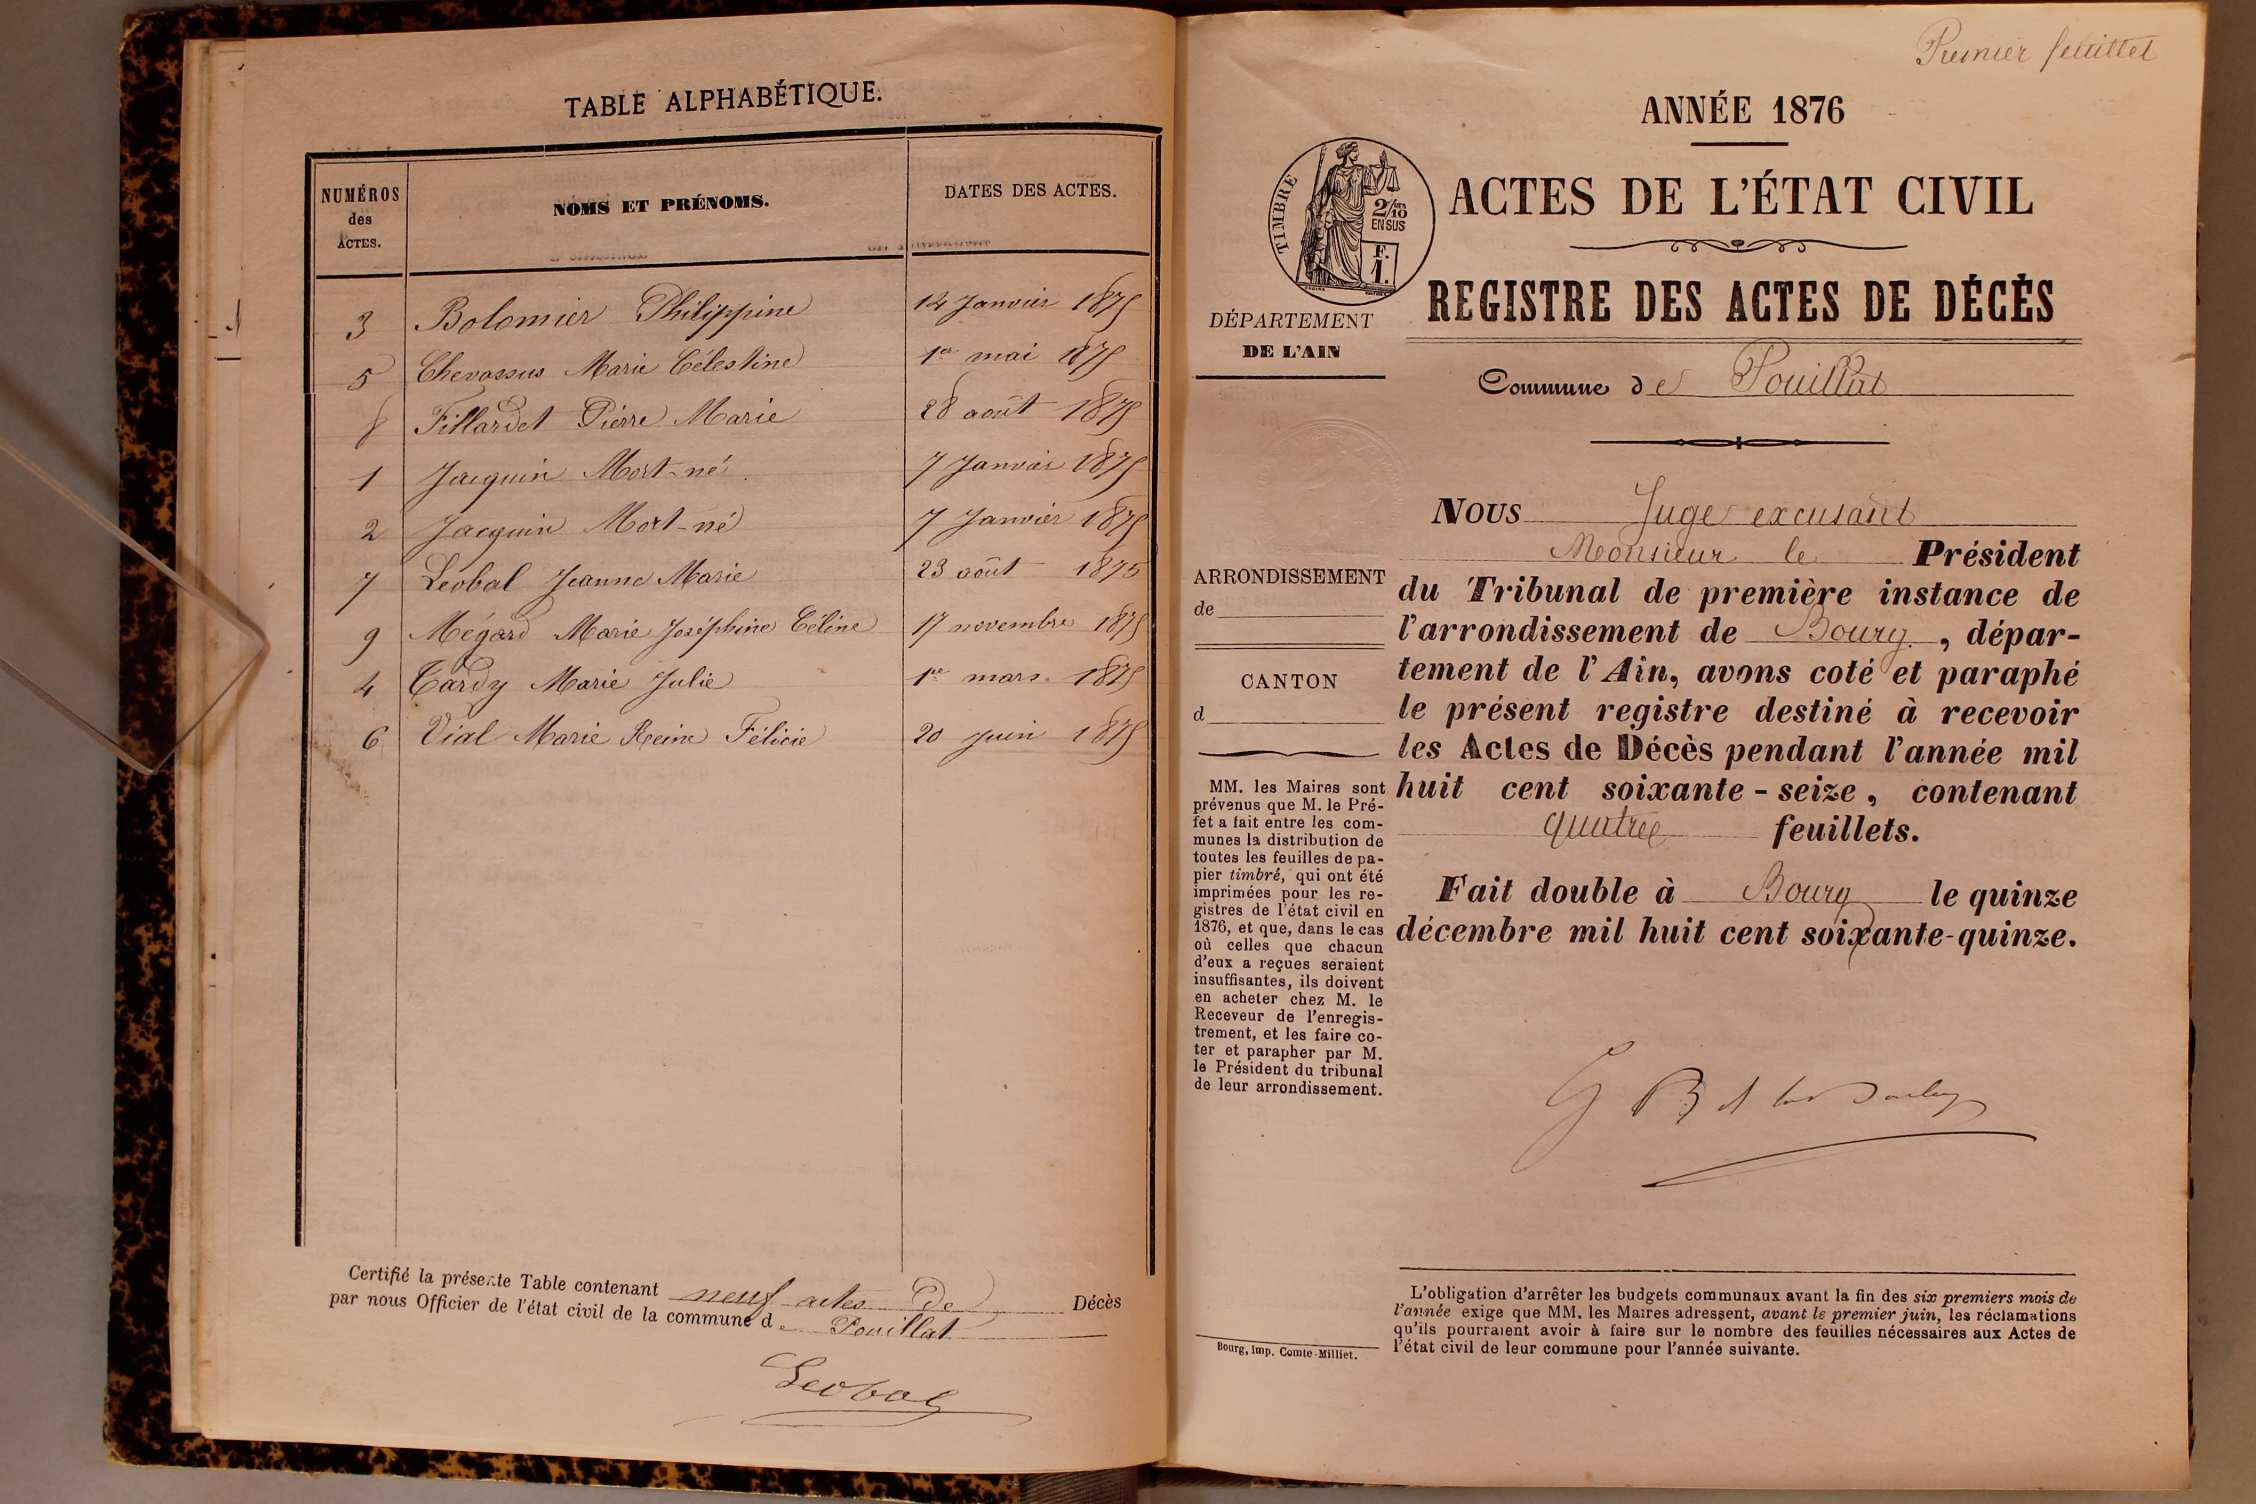 TABLE ALPHABÉTIQUE.
NUMÉROS des ACTES. NOMS ET PRÉNOMS. DATES DES ACTES.
3 Bolomier Philippine 14 Janvier 1875
5 Chevassus Marie Célestine 1er mai 1875
8 Fillardet Pierre Marie 28 août 1875
1 Jacquin Mort-né 7 Janvier 1875
2 Jacquin Mort-né 7 Janvier 1875
7 Leobal Jeanne Marie 23 août 1875
9 Mégard Marie Joséphine Céline 17 novembre 1875
4 Tardy Marie Julie 1er mars 1875
6 Vial Marie Reine Félicie 20 Juin 1875
Certifié la présente Table contenant neuf actes de Décès
par nous Officier de l'état civil de la commune de Pouillat
Leobal
Premier feuillet
ANNÉE 1876
TIMBRE
2/10
EN SUS
F.
1.
ACTES DE L'ÉTAT CIVIL
REGISTRE DES ACTES DE DÉCÈS
DÉPARTEMENT
DE L'AIN
Commune de Pouillat
ARRONDISSEMENT
de
CANTON
d
MM. les Maires sont
prévenus que M. le Pré-
fet a fait entre les com-
munes la distribution de
toutes les feuilles de pa-
pier timbré, qui ont été
imprimées pour les re-
gistres de l'état civil en
1876, et que, dans le cas
où celles que chacun
d'eux a reçues seraient
insuffisantes, ils doivent
en acheter chez M. le
Receveur de l'enregis-
trement, et les faire co-
ter et parapher par M.
le Président du tribunal
de leur arrondissement.
Bourg, imp. Comte-Milliet.
NOUS Juge excusant
Monsieur le Président
du Tribunal de première instance de
l'arrondissement de Bourg, dépar-
tement de l'Ain, avons coté et paraphé
le présent registre destiné à recevoir
les Actes de Décès pendant l'année mil
huit cent soixante-seize, contenant
quatre feuillets.
Fait double à Bourg le quinze
décembre mil huit cent soixante-quinze.
L'obligation d'arrêter les budgets communaux avant la fin des six premiers mois de
l'année exige que MM. les Maires adressent, avant le premier juin, les réclamations
qu'ils pourraient avoir à faire sur le nombre des feuilles nécessaires aux Actes de
l'état civil de leur commune pour l'année suivante.